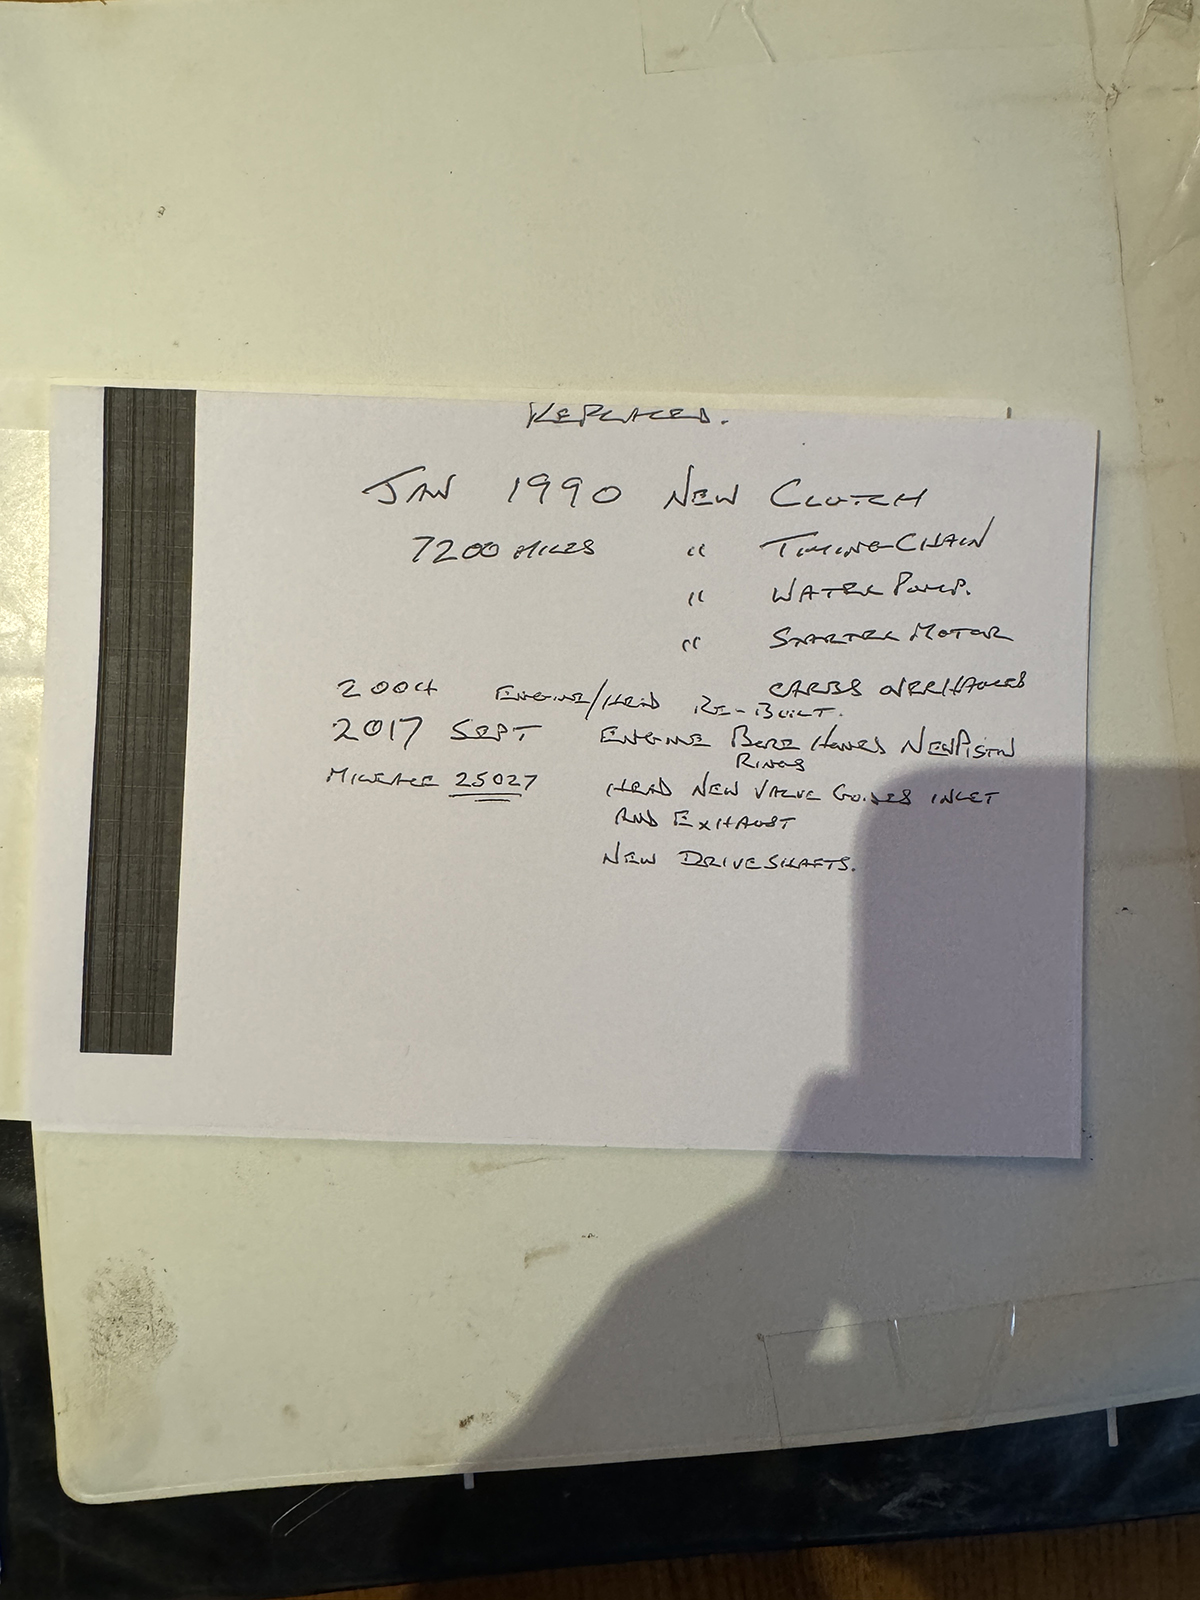 REPLACED.
JAN 1990 NEW CLUTCH
7200 MILES " TIMING CHAIN
" WATER PUMP.
" STARTER MOTOR
CARBS OVERHAULED
2004 ENGINE/HEAD RE-BUILT.
2017 SEPT ENGINE BORE HONED NEW PISTON
RINGS
MILEAGE 25027 HEAD NEW VALVE GUIDES INLET
AND EXHAUST
NEW DRIVESHAFTS.